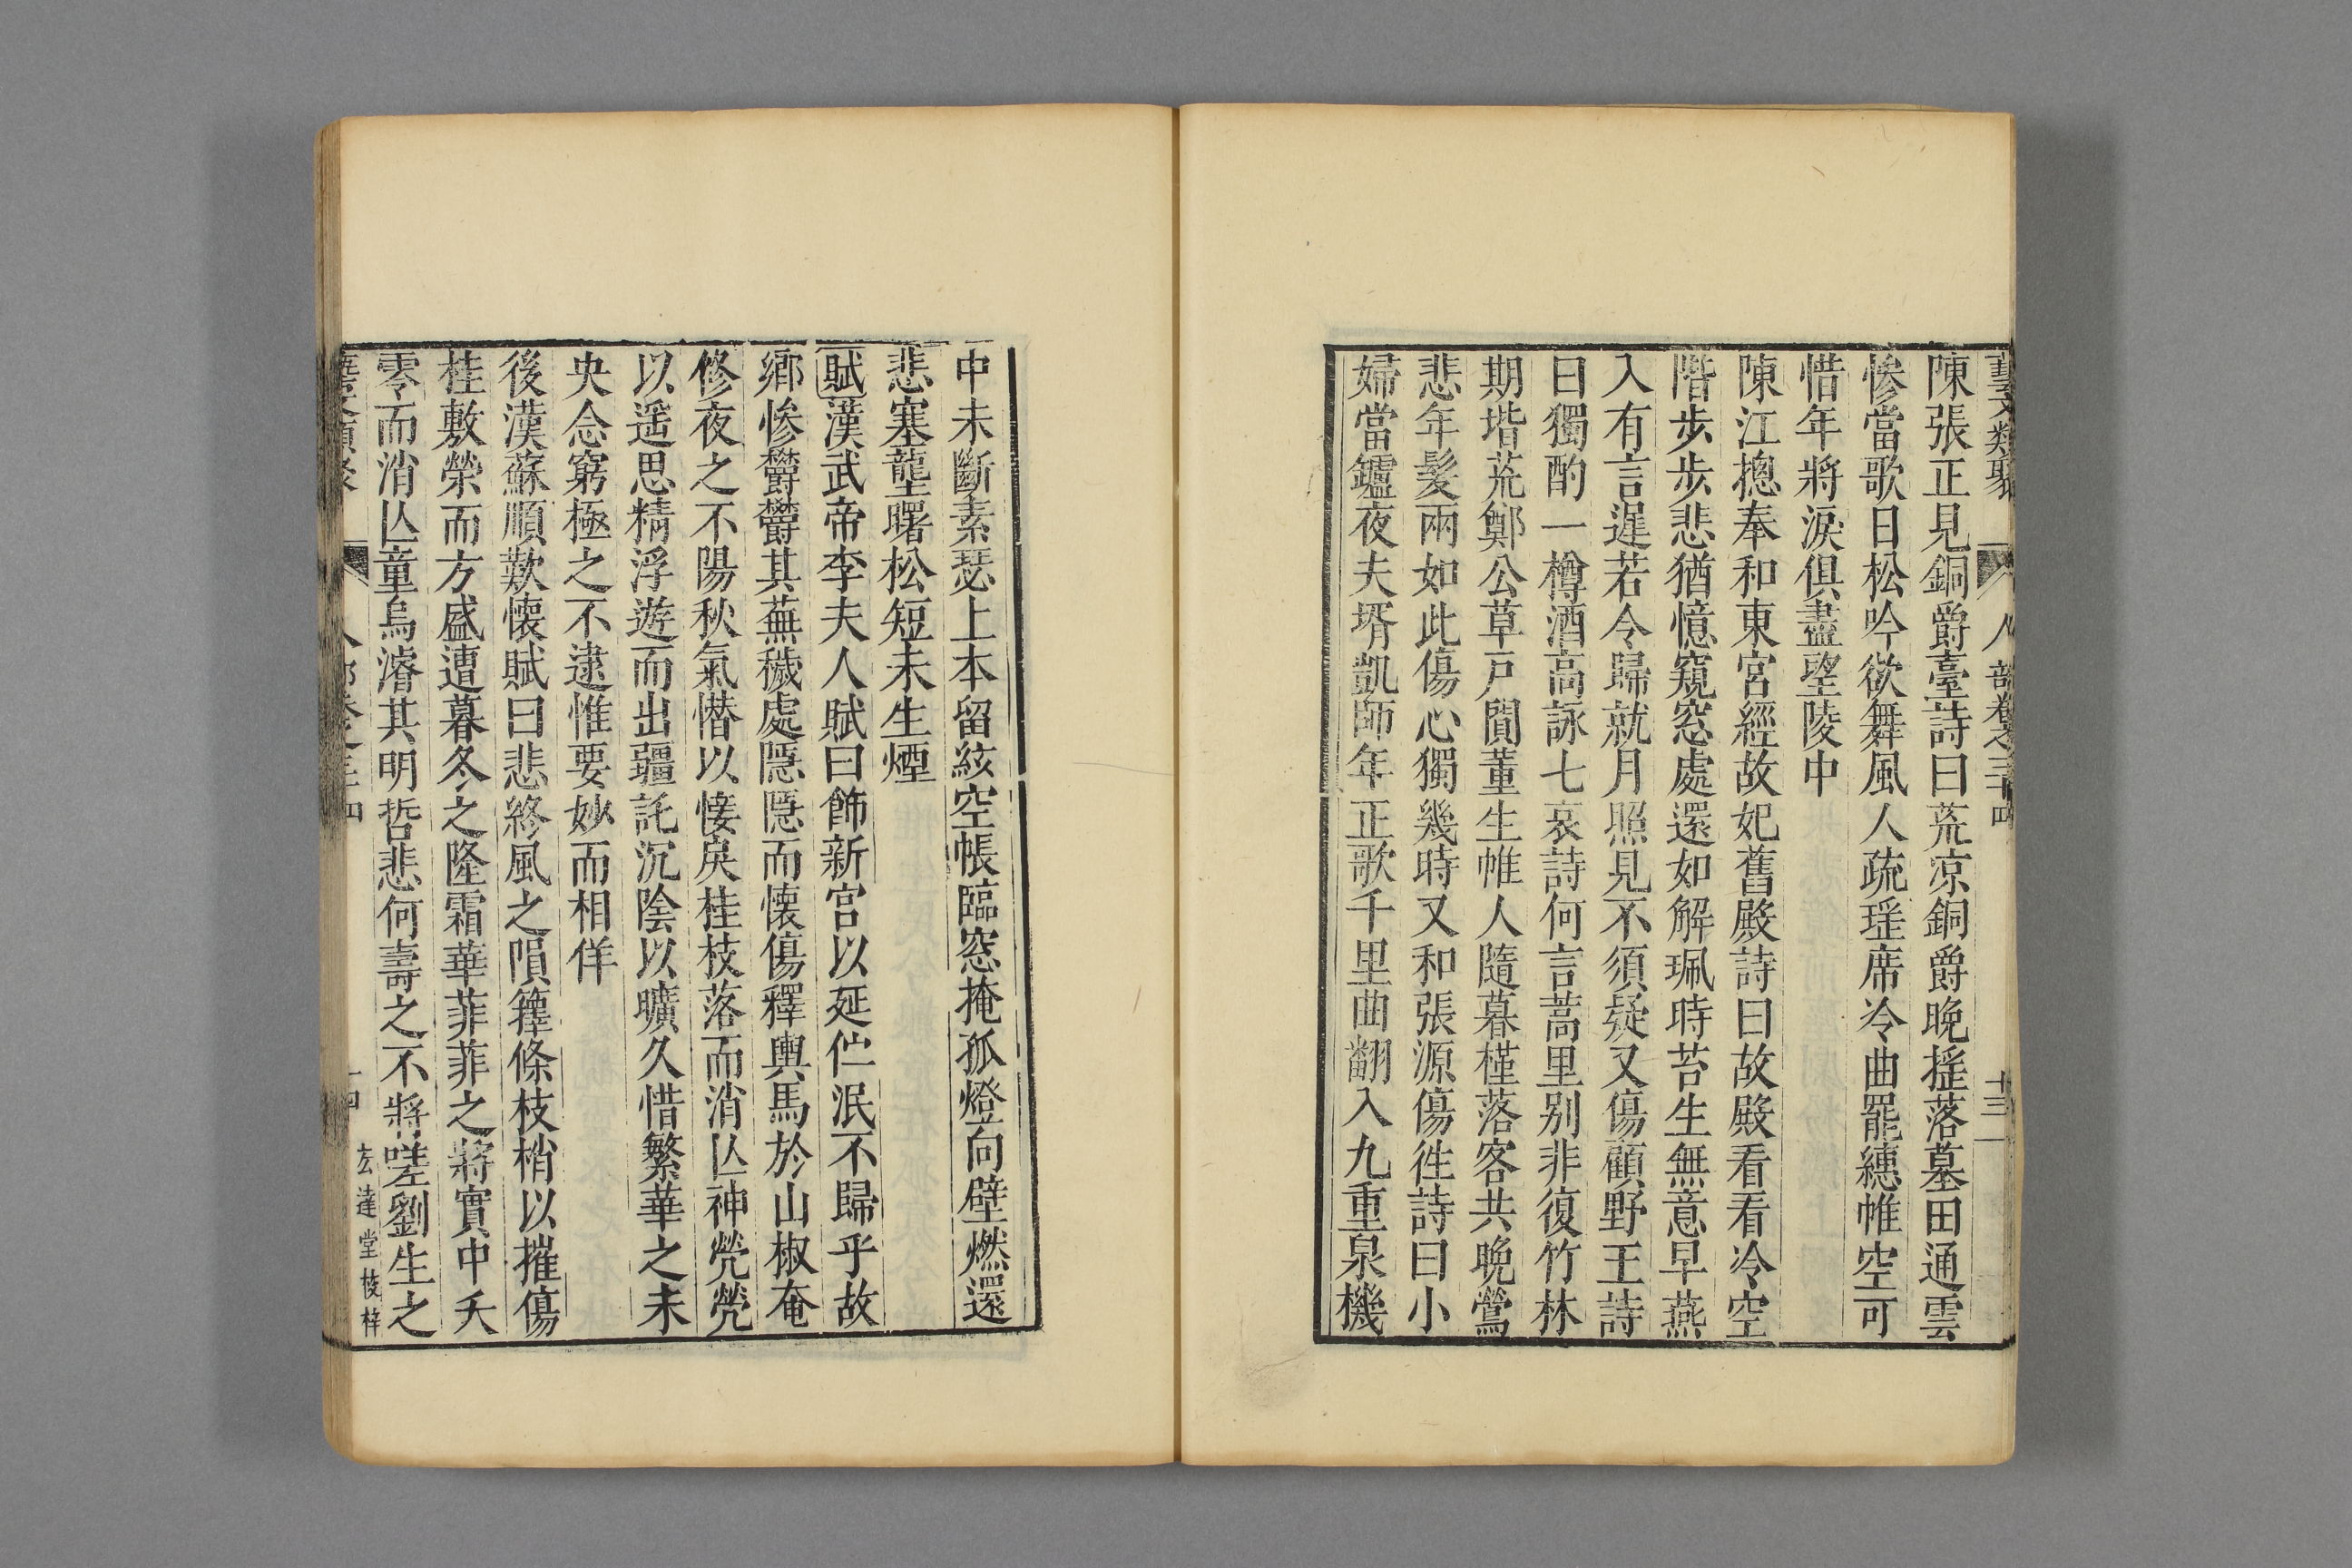 藝文類聚 人部卷之三十四 十三
陳張正見銅爵臺詩曰荒凉銅爵晚揺落墓田通雲
惨當歌日松吟欲舞風人疏瑶席冷曲罷繐帷空可
惜年將淚俱盡望陵中
陳江摠奉和東宮經故妃舊殿詩曰故殿看看冷空
階步步悲猶憶窺窓處還如解珮時苔生無意早燕
入有言遲若令歸就月照見不須疑又傷顧野王詩
曰獨酌一樽酒高詠七哀詩何言蒿里别非復竹林
期堦荒鄭公草戸閴董生帷人隨暮槿落客共晚鶯
悲年髪兩如此傷心獨幾時又和張源傷徃詩曰小
婦當鑪夜夫壻凱師年正歌千里曲翻入九重泉機
中未斷素瑟上本留絃空帳臨窓掩孤燈向壁燃還
悲塞壟曙松短未生煙
賦漢武帝李夫人賦曰飾新宫以延伫泯不歸乎故
鄉惨欝欝其蕪穢處隱隱而懐傷釋輿馬於山椒奄
修夜之不陽秋氣憯以悽戾桂枝落而消亾神煢煢
以遥思精浮遊而出疆託沉陰以曠久惜繁華之未
央念窮極之不逮惟要妙而相佯
後漢蘇順歎懐賦曰悲終風之隕籜條枝梢以摧傷
桂敷榮而方盛遭暮冬之隆霜華菲菲之將實中夭
零而消亾童烏濬其明哲悲何壽之不將嗟劉生之
藝文類聚 人部卷之三十四 十四 玄達堂校梓